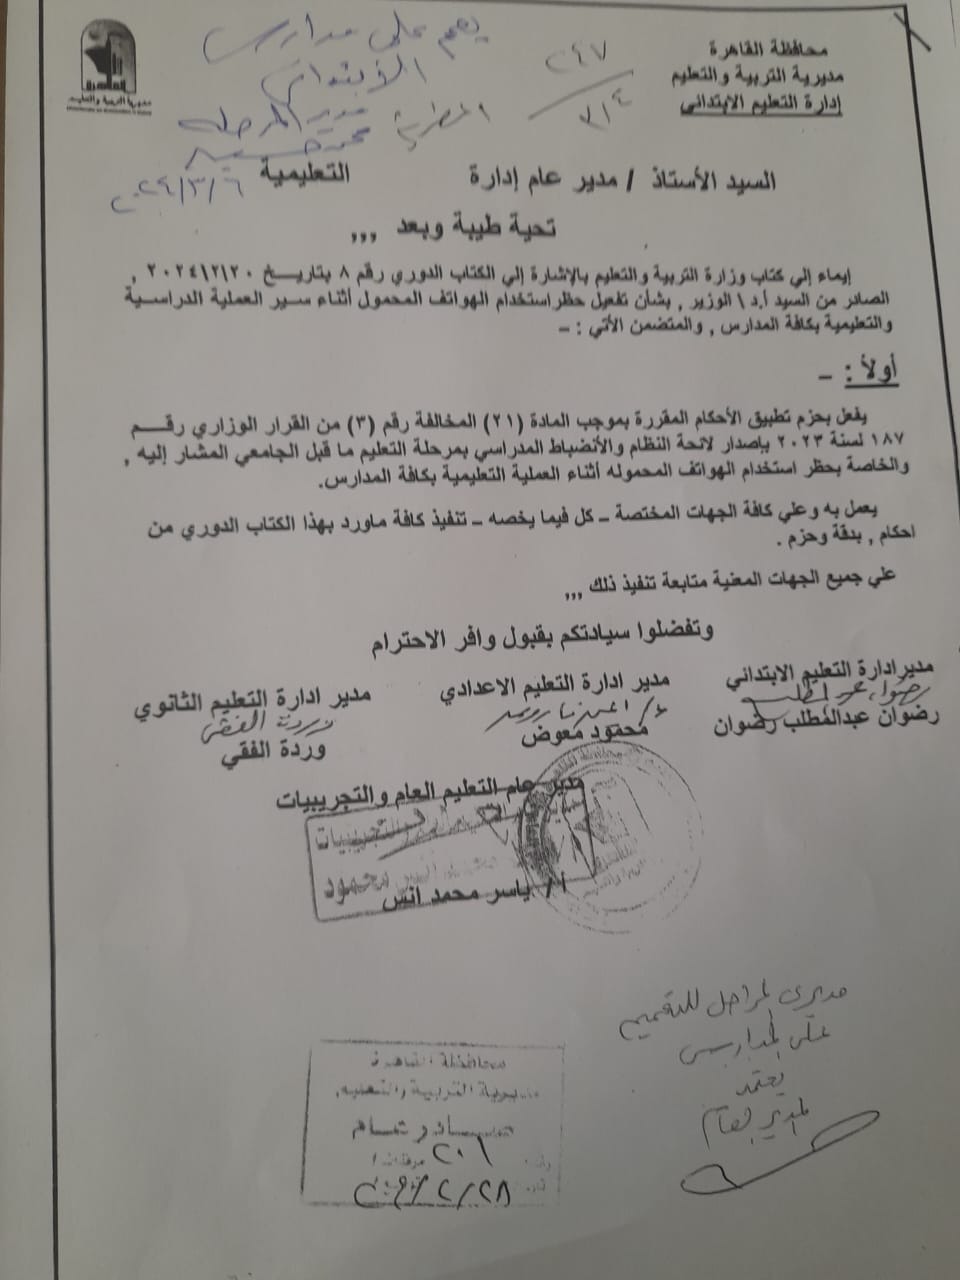 محافظة القاهرة
مديرية التربية والتعليم
إدارة التعليم الابتدائي
مديرية التربية والتعليم
يعمم على مدارس
الابتدائى
مدير المرحلة
٢٠٢٤/٣/٦
٢٤٧
٣/٤
السيد الأستاذ / مدير عام إدارة المطرية التعليمية
تحية طيبة وبعد ,,,
إيماء إلي كتاب وزارة التربية والتعليم بالإشارة إلي الكتاب الدوري رقم ٨ بتاريـــخ ٢٠٢٤\٢\٢٠ ,
الصادر من السيد أ.د \ الوزير , بشأن تفعيل حظر استخدام الهواتف المحمول أثناء سير العملية الدراسـية
والتعليمية بكافة المدارس , والمتضمن الأتي : –
أولاً : –
يفعل بحزم تطبيق الأحكام المقررة بموجب المادة (٢١) المخالفة رقم (٣) من القرار الوزاري رقـــم
١٨٧ لسنة ٢٠٢٣ بإصدار لائحة النظام والأنضباط المدراسي بمرحلة التعليم ما قبل الجامعي المشار إليه ,
والخاصة بحظر استخدام الهواتف المحموله أثناء العملية التعليمية بكافة المدارس.
يعمل به وعلي كافة الجهات المختصة – كل فيما يخصه – تنفيذ كافة ماورد بهذا الكتاب الدوري من
احكام , بدقة وحزم .
علي جميع الجهات المعنية متابعة تنفيذ ذلك ,,,
وتفضلوا سيادتكم بقبول وافر الاحترام
مدير ادارة التعليم الابتدائي
مدير ادارة التعليم الاعدادي
مدير ادارة التعليم الثانوي
رضوان عبد المطلب
وردة الفقى
رضوان عبدالمطلب رضوان
محمود معوض
وردة الفقي
مدير عام التعليم العام والتجريبيات
والتجريبيات
محمود
أ / ياسر محمد انس
مديرى المراحل للتعميم
على المدارس
يعتمد
المدير العام
محافظة القاهرة
مديرية التربية والتعليم
صــادر عــام
٢٠١
٢٠٢٤/٢/٢٨